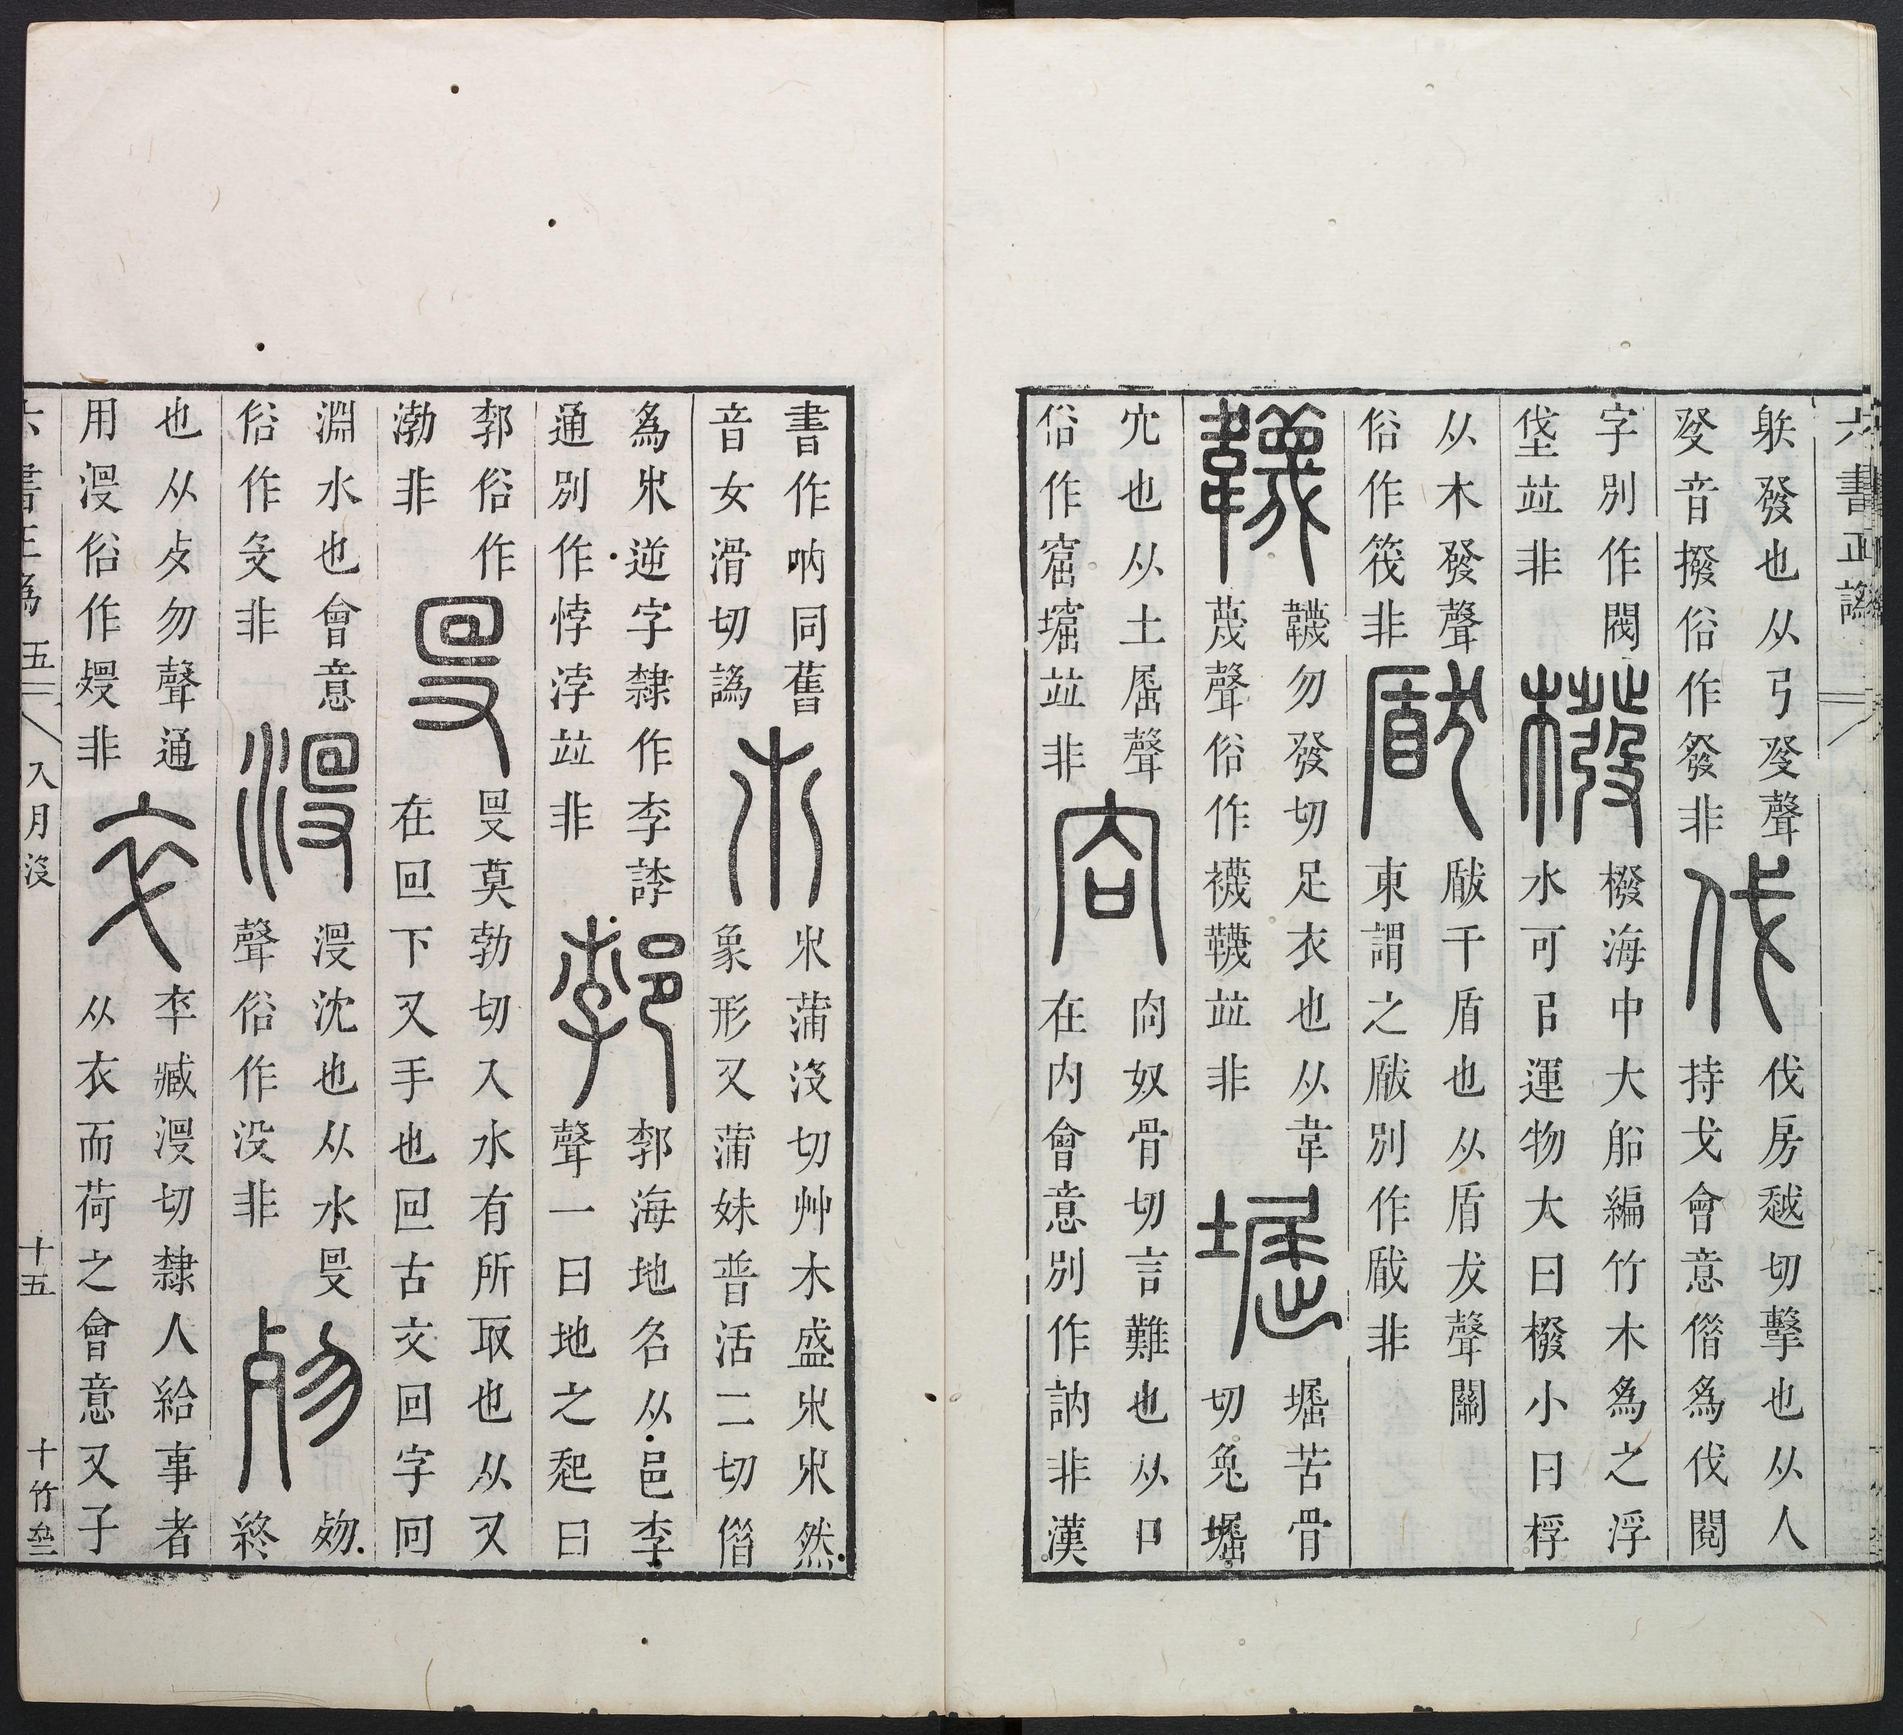 六書正譌
躲發也从弓癹聲
癹音撥俗作發非
伐
伐房越切擊也从人
持戈會意借爲伐閱
字別作閥
垡並非
橃
橃海中大船編竹木爲之浮
水可㠯運物大曰橃小曰桴
从木發聲
俗作筏非
瞂
瞂干盾也从盾犮聲關
東謂之瞂別作戩非
韤
韤勿發切足衣也从韋
蔑聲俗作襪韈並非
堀
堀苦骨切兔堀
穴也从土屈聲
俗作窟𡑣並非
㕯
㕯奴骨切言難也从口
在內會意別作訥非漢
書作吶同舊
音女滑切譌
朩
朩蒲沒切艸木盛朩朩然
象形又蒲妹普活二切借
爲朩逆字隸作孛誖
通別作悖浡並非
郣
郣海地名从邑孛
聲一曰地之起曰
郣俗作
渤非
𠬛
𠬛莫勃切入水有所取也从又
在囘下又手也囘古文回字回
淵水也會意
俗作叐非
沒
沒沈也从水𠬛
聲俗作没非
歾
歾終
也从歺勿聲通
用沒俗作𡜏非
卒
卒臧沒切隸人給事者
从衣而荷之會意又子
六書正譌 五 入月沒 十五 十竹斋